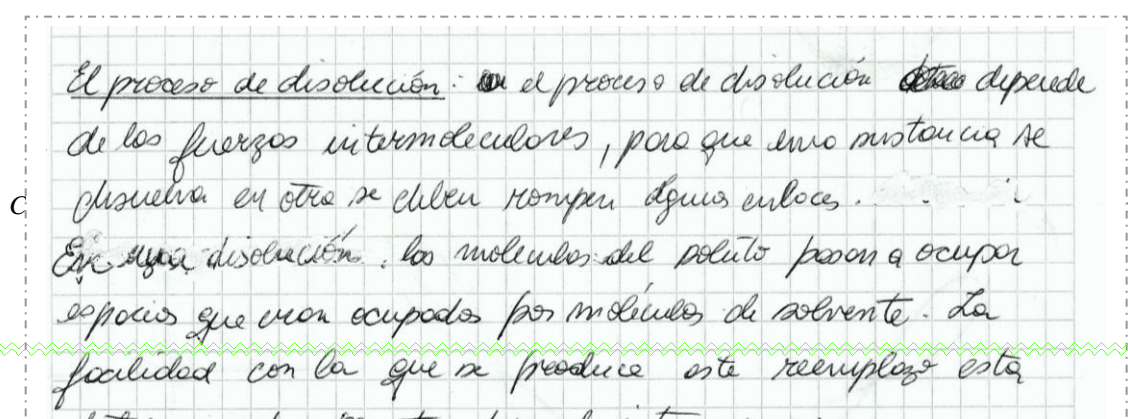 El proceso de disolución: el proceso de disolución depende
de las fuerzas intermoleculares, para que una sustancia se
disuelva en otra se deben romper algunos enlaces.
En una disolución las moléculas del soluto pasan a ocupar
espacios que eran ocupados por moléculas de solvente. La
facilidad con la que se produce este reemplazo esta